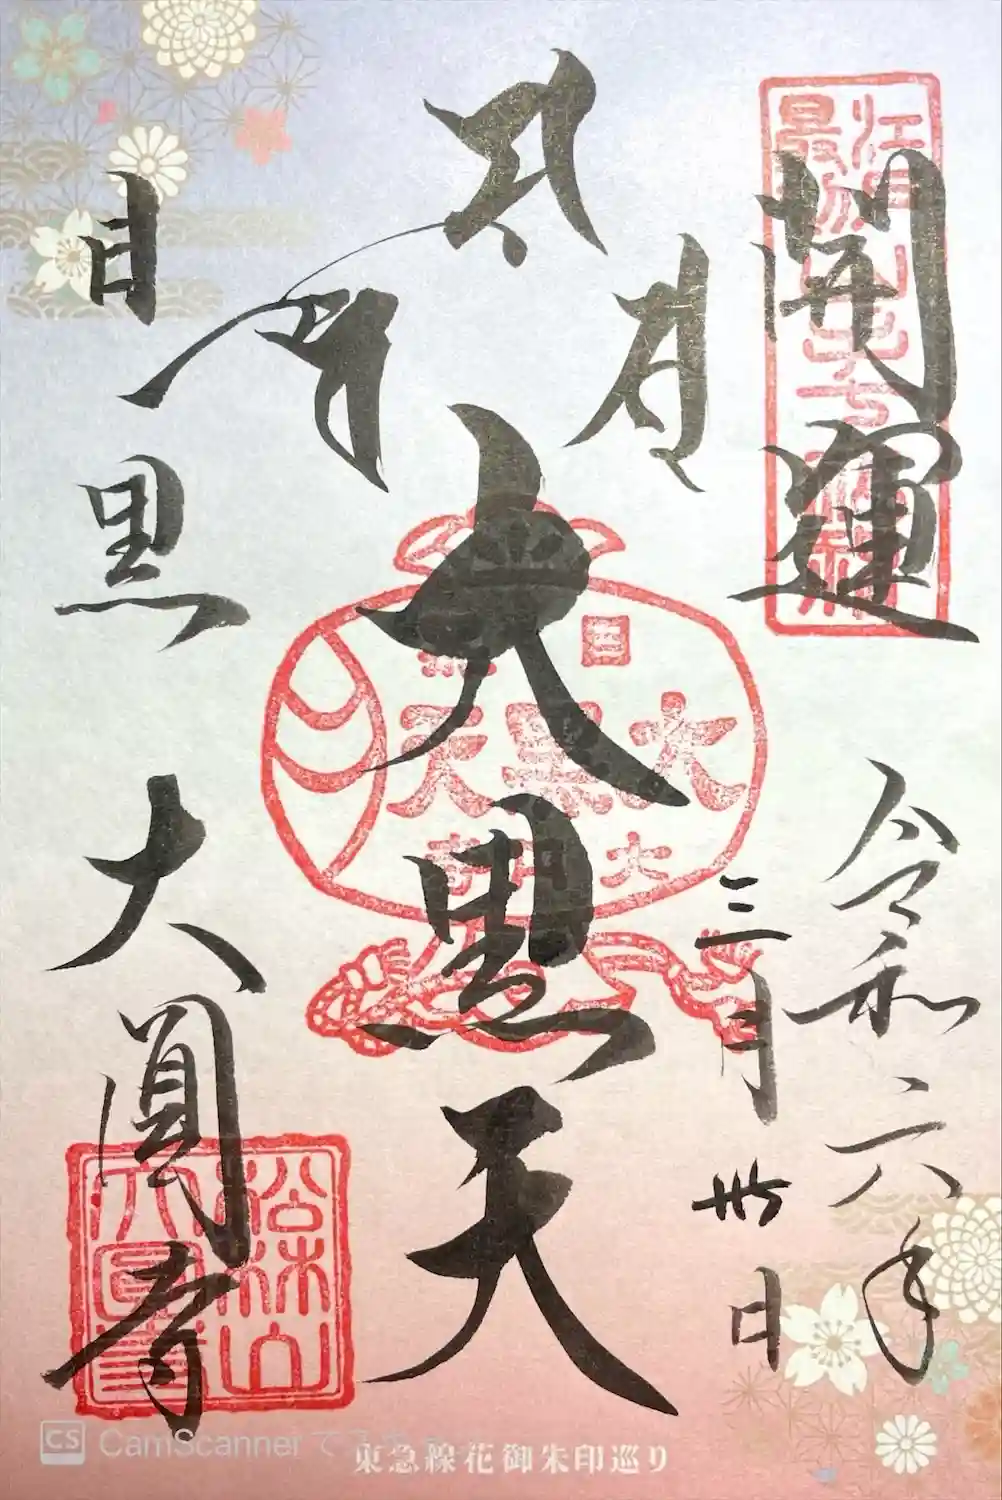 開運
大黒天
令和六年
三月卅日
目黒
大圓寺
江戸最初山手七福神
目黒
大黒天
大円寺
松林山
大圓寺
東急線花御朱印巡り
CS CamScanner で